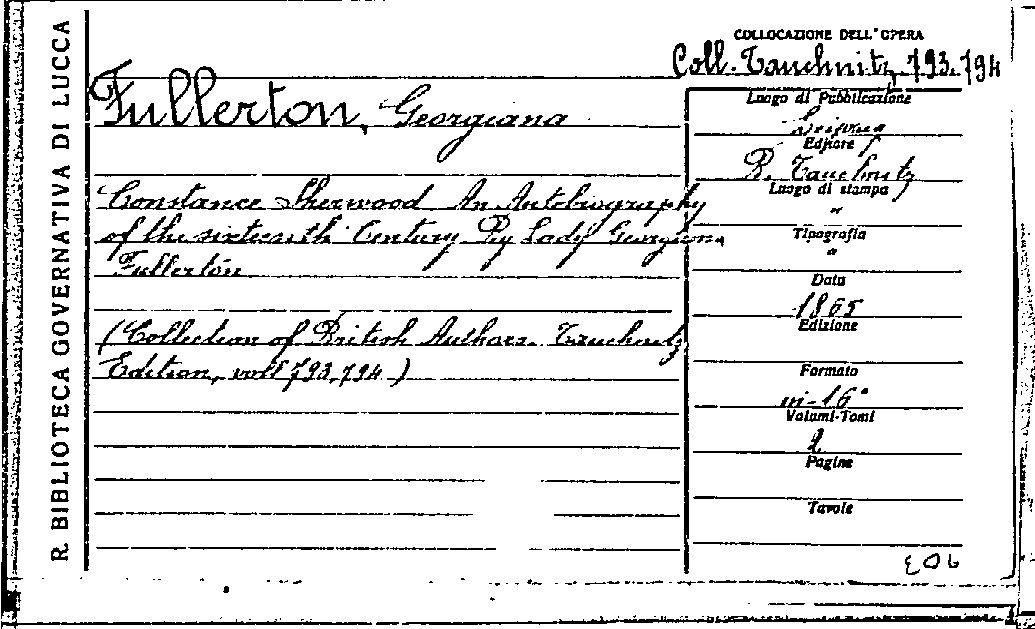 R. BIBLIOTECA GOVERNATIVA DI LUCCA
COLLOCAZIONE DELL'OPERA
Coll. Tauchnitz, 793.794
Fullerton, Georgiana
Constance Sherwood An Autobiography
of the sixteenth Century By Lady Georgiana
Fullerton
(Collection of British Authors Tauchnitz
Edition, voll 793,794)
Luogo di Pubblicazione
Leipzig
Editore
B. Tauchnitz
Luogo di stampa
"
Tipografia
"
Data
1865
Edizione
Formato
in-16°
Volumi-Tomi
2
Pagine
Tavole